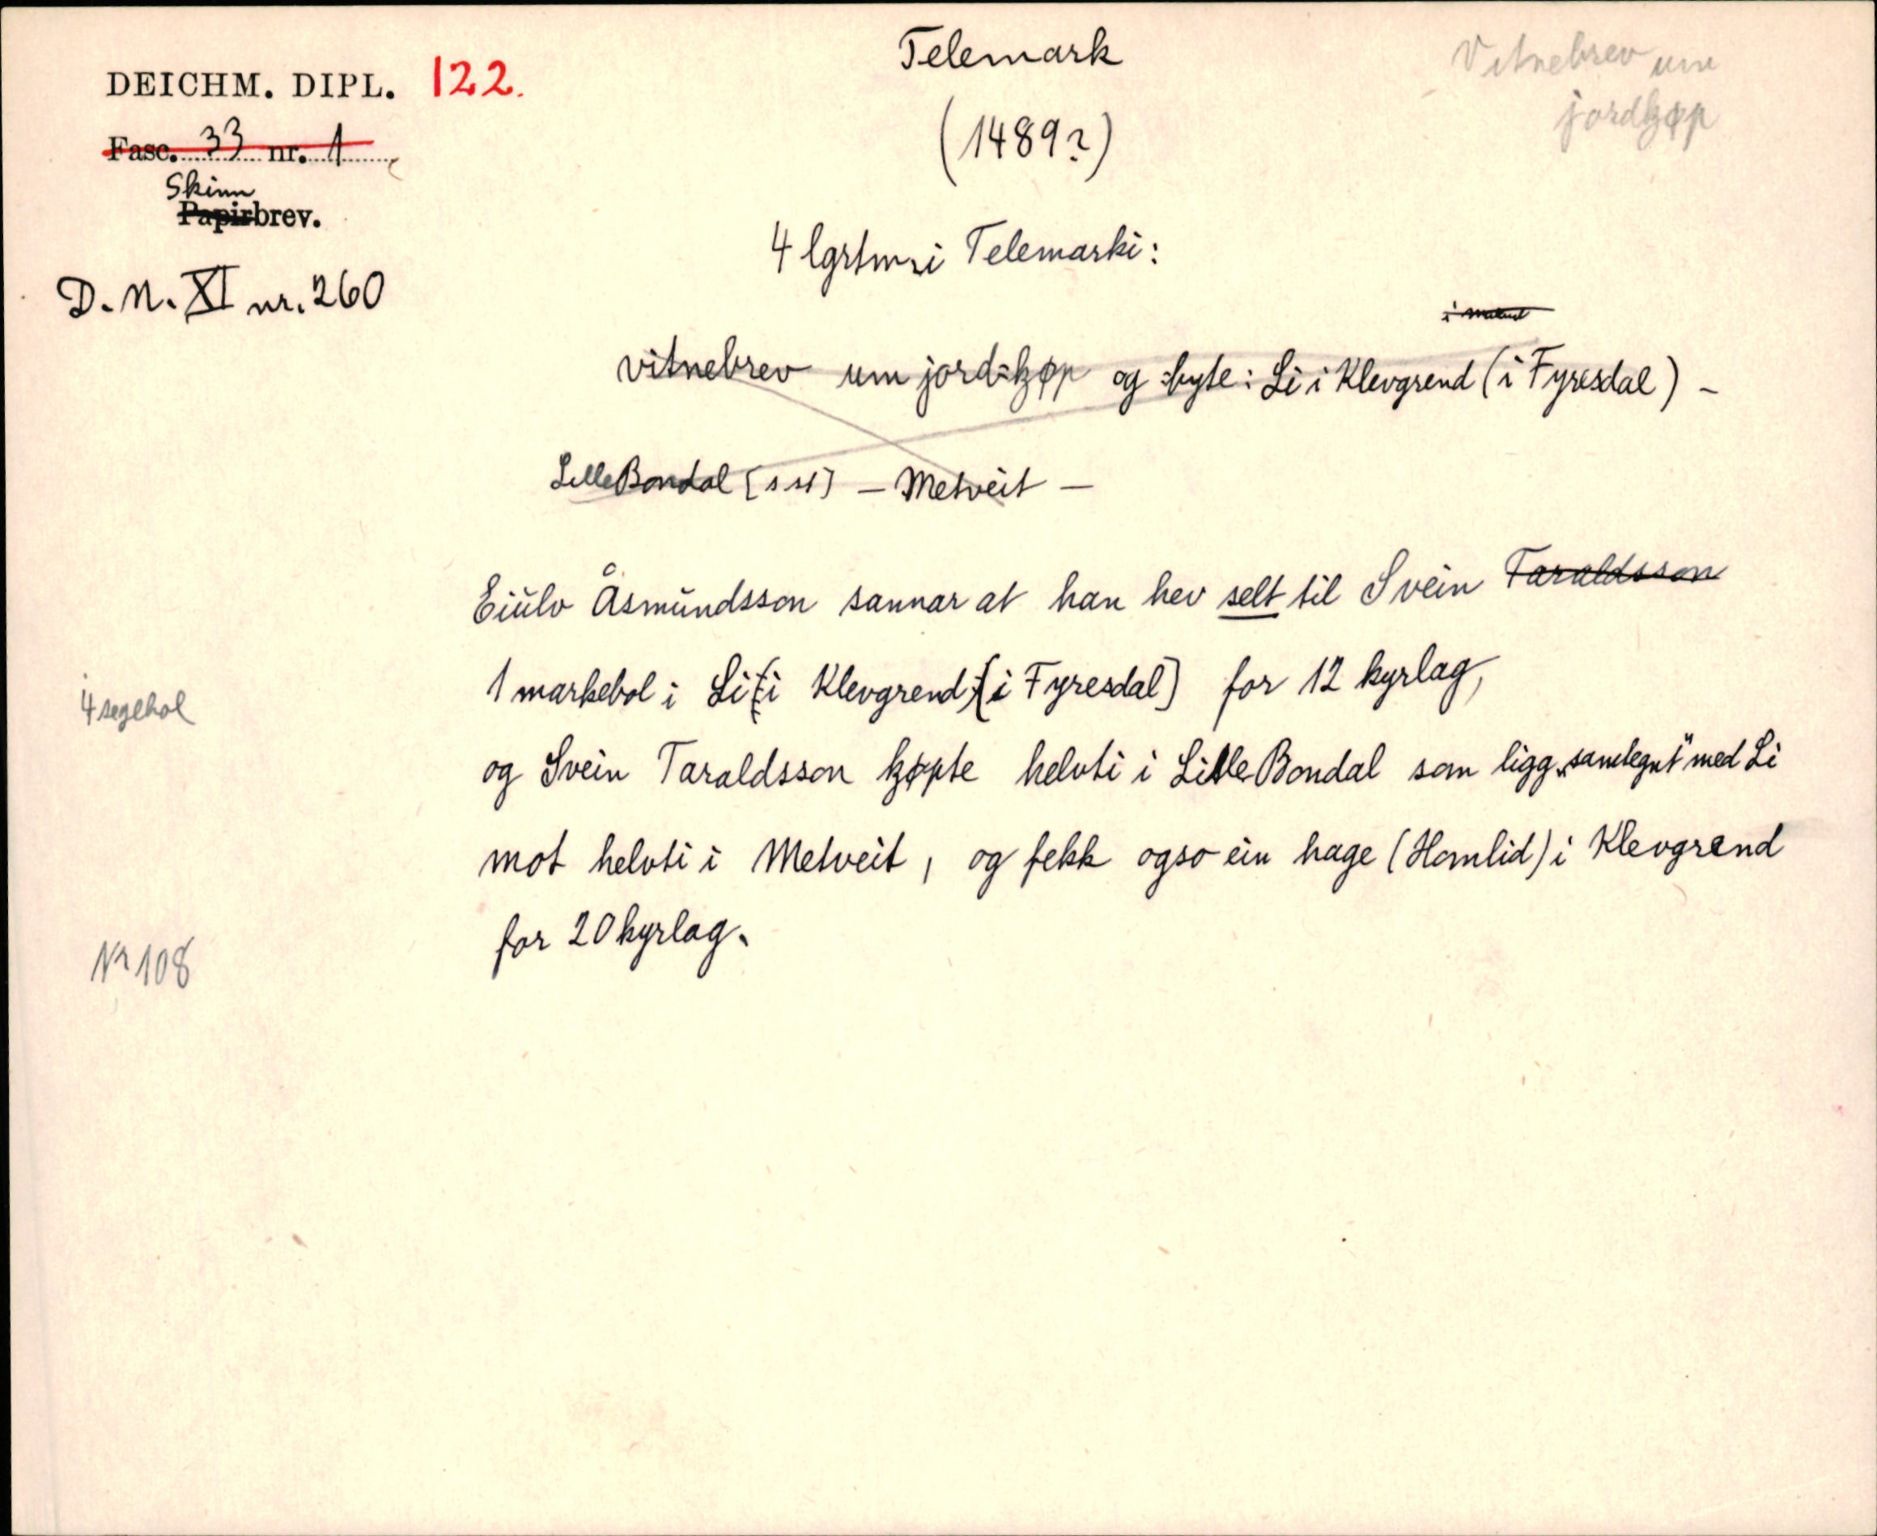 DEICHM. DIPL. 122.
Fasc. 33 nr. 1
Skinn
Papirbrev.
D.N. XI nr. 260
Telemark
(1489?)
Vitnebrev um
jordkjøp
4 lgrtm. i Telemarki:
vitnebrev um jord-kjøp og -byte: Li i Klevgrend (i Fyresdal) -
Lille Bondal [sst] - Metveit -
Eiulv Åsmundsson sannar at han hev selt til Svein Taraldsson
1 markebol i Li (i Klevgrend) [i Fyresdal] for 12 kyrlag,
og Svein Taraldsson kjøpte helvti i Lille Bondal som ligg „samlegnt" med Li
mot helvti i Metveit, og fekk ogso ein hage (Homlid) i Klevgrend
for 20 kyrlag.
4 segl hol
Nr 108